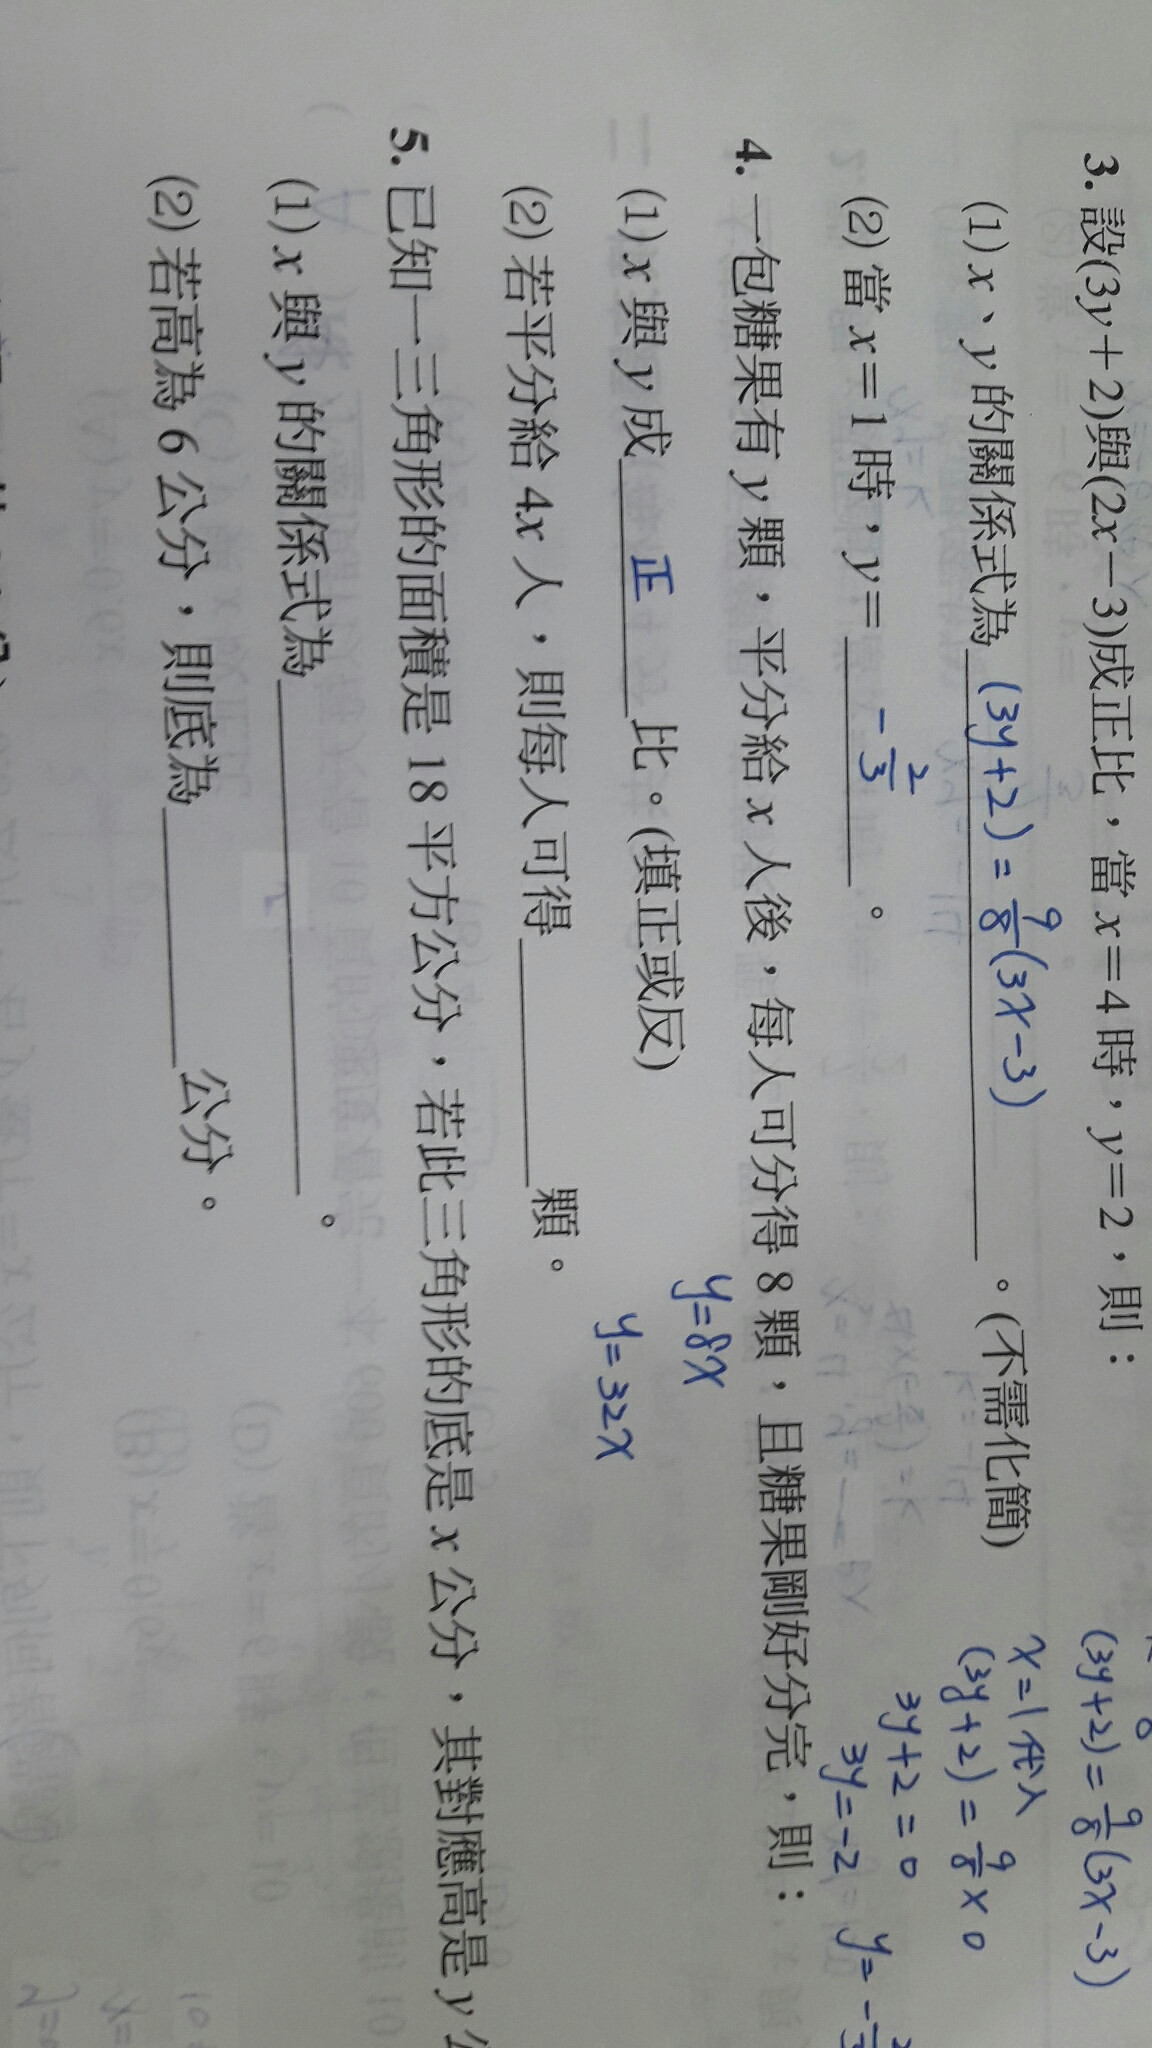 3. 設(3y+2)與(2x-3)成正比，當x=4時，y=2，則：
(1) x、y的關係式為 (3y+2) = 9/8 (3x-3) 。(不需化簡)
(2) 當x=1時，y= -2/3 。
(3y+2) = 9/8 (3x-3)
x=1 代入
(3y+2) = 9/8 × 0
3y+2=0
3y=-2
4. 一包糖果有y顆，平分給x人後，每人可分得8顆，且糖果剛好分完，則：
(1) x與y成 正 比。(填正或反)
y=8x
(2) 若平分給4x人，則每人可得 顆。
y=32x
5. 已知一三角形的面積是18平方公分，若此三角形的底是x公分，其對應高是y公
(1) x與y的關係式為 。
(2) 若高為6公分，則底為 公分。